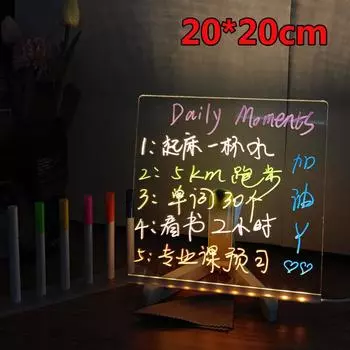 20*20cm
Daily Moments
1:起床一杯水
2:5km跑步
3:单词30个
4:看书2小时
5:专业课预习
加
油
丫
♡♡